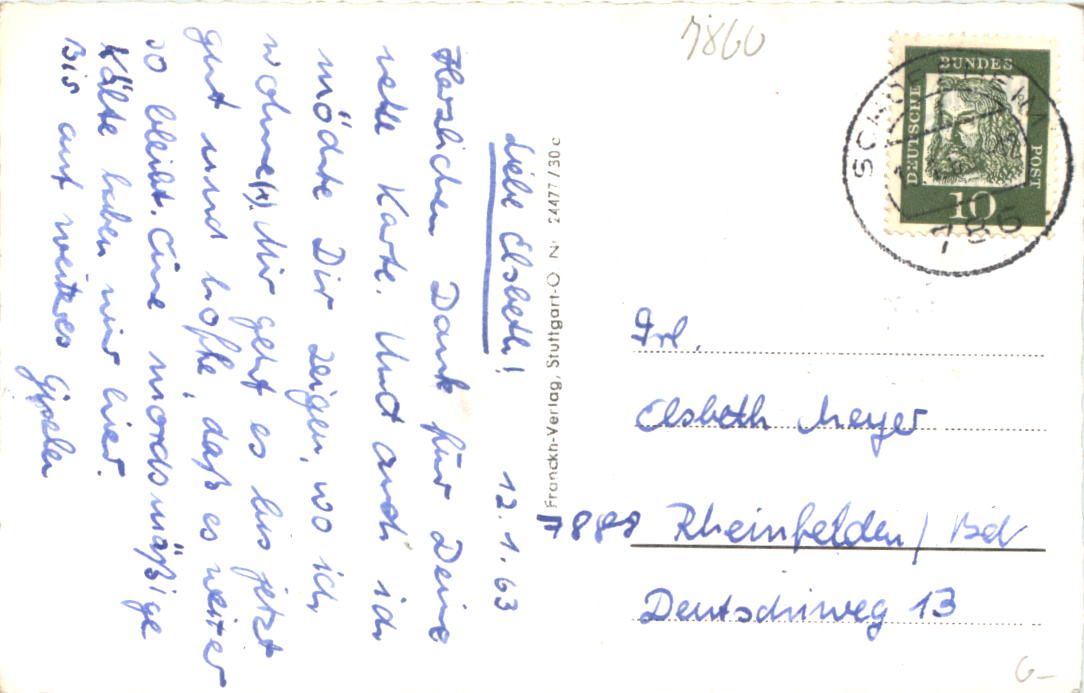 Liebe Elsbeth! 12.1.63
Herzlichen Dank für Deine
nette Karte. Und auch ich
möchte Dir zeigen, wo ich
wohne(x). Mir geht es bis jetzt
gut und hoffe, daß es weiter
so bleibt. Eine mordsmäßige
Kälte haben wir hier.
Bis auf weiteres Gisela
Franckh-Verlag, Stuttgart-O Nr 24477/30c
7860
DEUTSCHE
BUNDES
POST
10
786
Frl.
Elsbeth Meyer
7888 Rheinfelden/Bd
Deutschiweg 13
G-